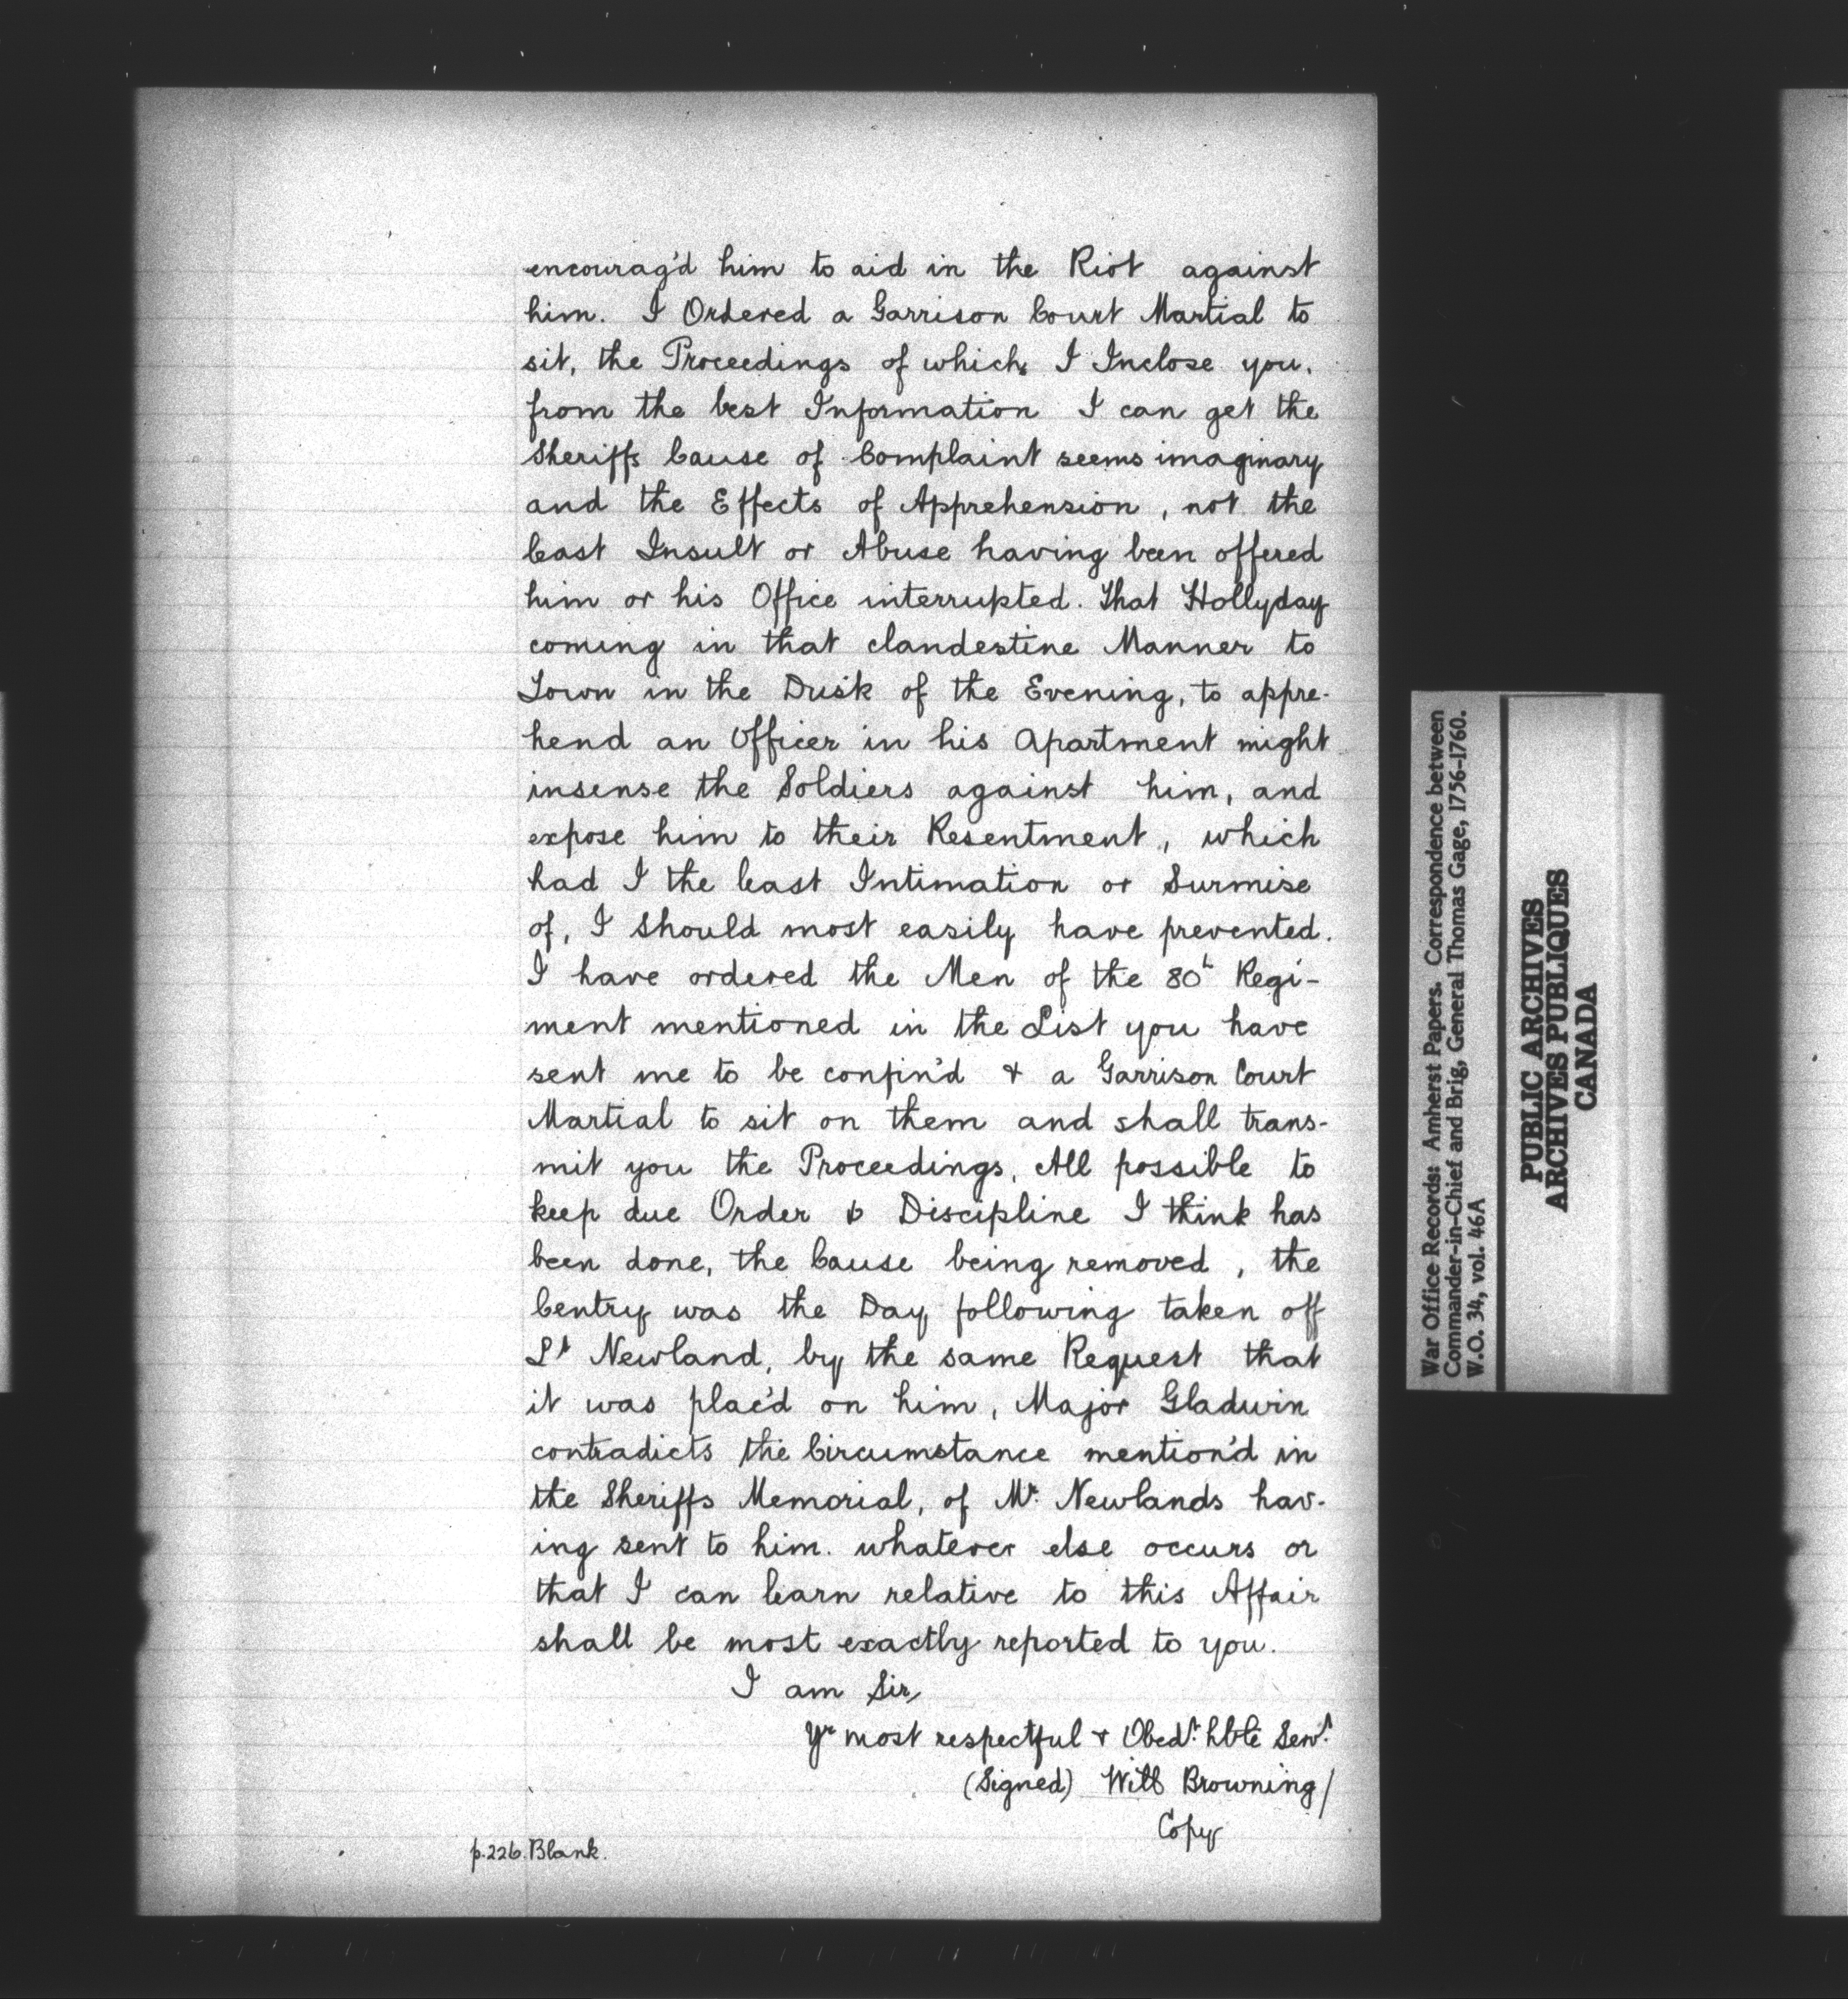 encourag'd him to aid in the Riot against
him. I Ordered a Garrison Court Martial to
sit, the Proceedings of which I Inclose you.
from the best Information I can get the
Sheriffs Cause of Complaint seems imaginary
and the Effects of Apprehension, not the
least Insult or Abuse having been offered
him or his Office interrupted. That Hollyday
coming in that clandestine Manner to
Town in the Dusk of the Evening, to appre-
hend an Officer in his Apartment might
insense the Soldiers against him, and
expose him to their Resentment, which
had I the least Intimation or Surmise
of, I should most easily have prevented.
I have ordered the Men of the 80th Regi-
ment mentioned in the List you have
sent me to be confin'd & a Garrison Court
Martial to sit on them and shall trans-
mit you the Proceedings, All possible to
keep due Order & Discipline I think has
been done, the Cause being removed, the
Centry was the Day following taken off
Lt Newland, by the same Request that
it was plac'd on him, Major Gladwin
contradicts the Circumstance mention'd in
the Sheriffs Memorial, of Mr. Newlands hav-
ing sent to him. whatever else occurs or
that I can learn relative to this Affair
shall be most exactly reported to you.
I am Sir,
Yr most respectful & Obedt. hble Servt.
(Signed) Will Browning/
Copy
p.226. Blank.
War Office Records: Amherst Papers. Correspondence between
Commander-in-Chief and Brig, General Thomas Gage, 1756-1760.
W.O. 34, vol. 46A
PUBLIC ARCHIVES
ARCHIVES PUBLIQUES
CANADA